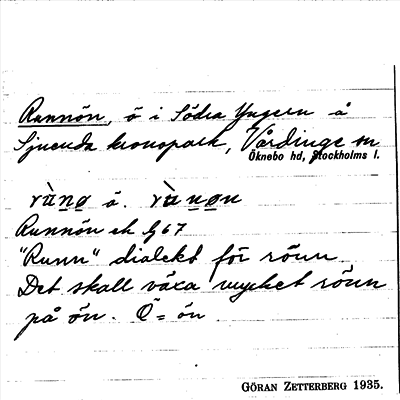 Runnön, ö i Södra Yngern å
Sjuenda kronopark, Vårdinge sn
Öknebo hd, Stockholms l.
rùnø å. rùnøn
Runnön ek G 67
"Runn" dialekt för rönn.
Det skall växa mycket rönn
på ön. Ö = ön
GÖRAN ZETTERBERG 1935.